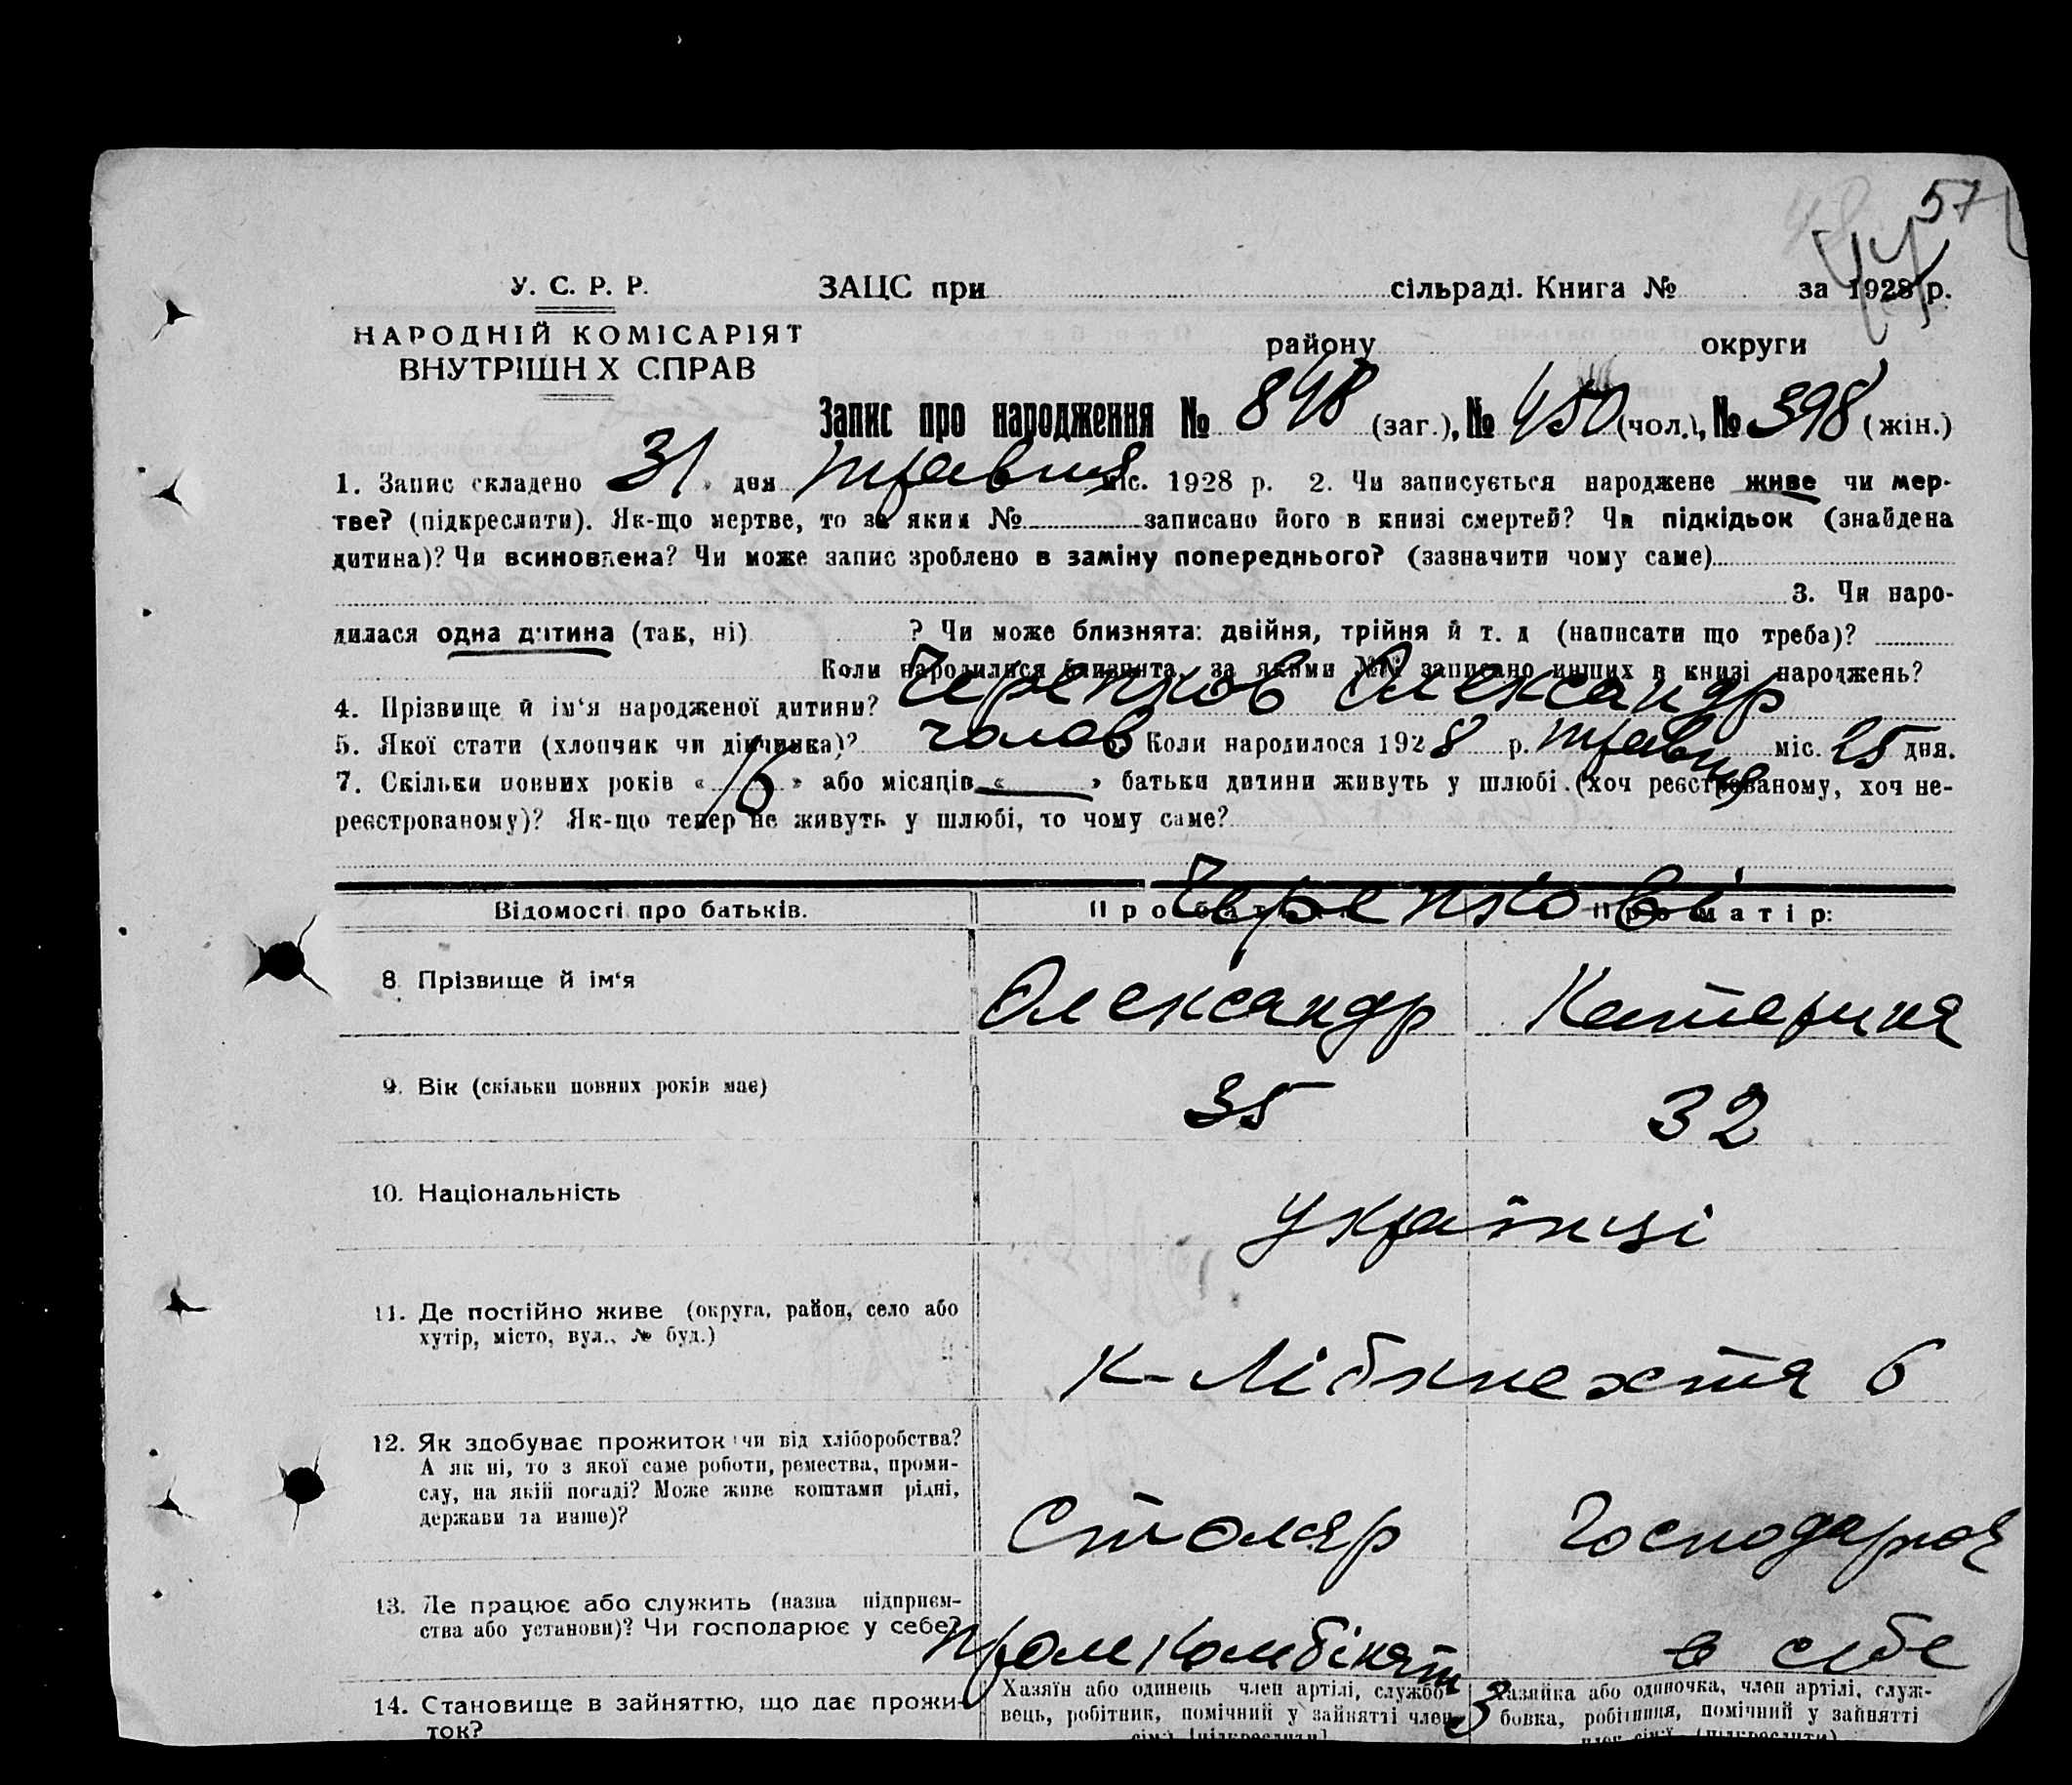 57
48
44
У. С. Р. Р.
НАРОДНІЙ КОМІСАРІЯТ
ВНУТРІШН Х СПРАВ
ЗАЦС при сільраді. Книга № за 1928 р.
району округи
Запис про народження № 848 (заг.), № 450 (чол.), № 398 (жін.)
1. Запис складено 31 дня травня міс. 1928 р. 2. Чи записується народжене живе чи мер-
тве? (підкреслити). Як-що мертве, то за яким № записано його в книзі смертей? Чи підкідьок (знайдена
дитина)? Чи всиновлена? Чи може запис зроблено в заміну попереднього? (зазначити чому саме)
3. Чи наро-
дилася одна дитина (так, ні) ? Чи може близнята: двійня, трійня й т. д (написати що треба)?
Коли народилися близнята, за якими №№ записано инших в книзі народжень?
4. Прізвище й ім‘я народженої дитини? Черепков Олександр
5. Якої стати (хлопчик чи дівчинка)? чолов Коли народилося 1928 р. травня міс. 25 дня.
7. Скільки повних років « 16 » або місяців « — » батьки дитини живуть у шлюбі (хоч реєстрованому, хоч не-
реєстрованому)? Як-що тепер не живуть у шлюбі, то чому саме?
Відомості про батьків. Про батька: Про матір:
Черепкові
8. Прізвище й ім‘я Олександр Катерина
9. Вік (скільки повних років має) 35 32
10. Національність українці
11. Де постійно живе (округа, район, село або
хутір, місто, вул., № буд.)
К-Лібкнехтя 6
12. Як здобуває прожиток чи від хліборобства?
А як ні, то з якої саме роботи, ремества, проми-
слу, на якій посаді? Може живе коштами рідні,
держави та инше)?
Столяр Господарює
13. Де працює або служить (назва підприєм-
ства або установи)? Чи господарює у себе?
Промкомбінат в себе
14. Становище в зайняттю, що дає прожи-
ток?
Хазяїн або одинець член артілі, службо-
вець, робітник, помічний у зайнятті член
сім'ї (підкреслити)
3
Хазяйка або одиночка, член артілі, служ-
бовка, робітниця, помічний у зайнятті
член сім'ї (підкреслити)